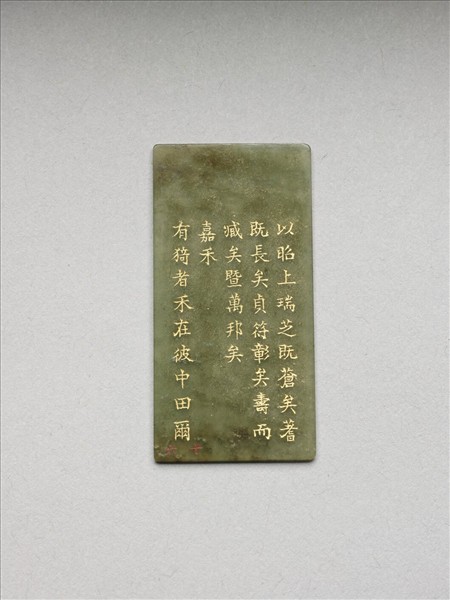 以昭上瑞芝既蒼矣蓍
既長矣貞符彰矣壽而
臧矣暨萬邦矣
嘉禾
有猗者禾在彼中田爾